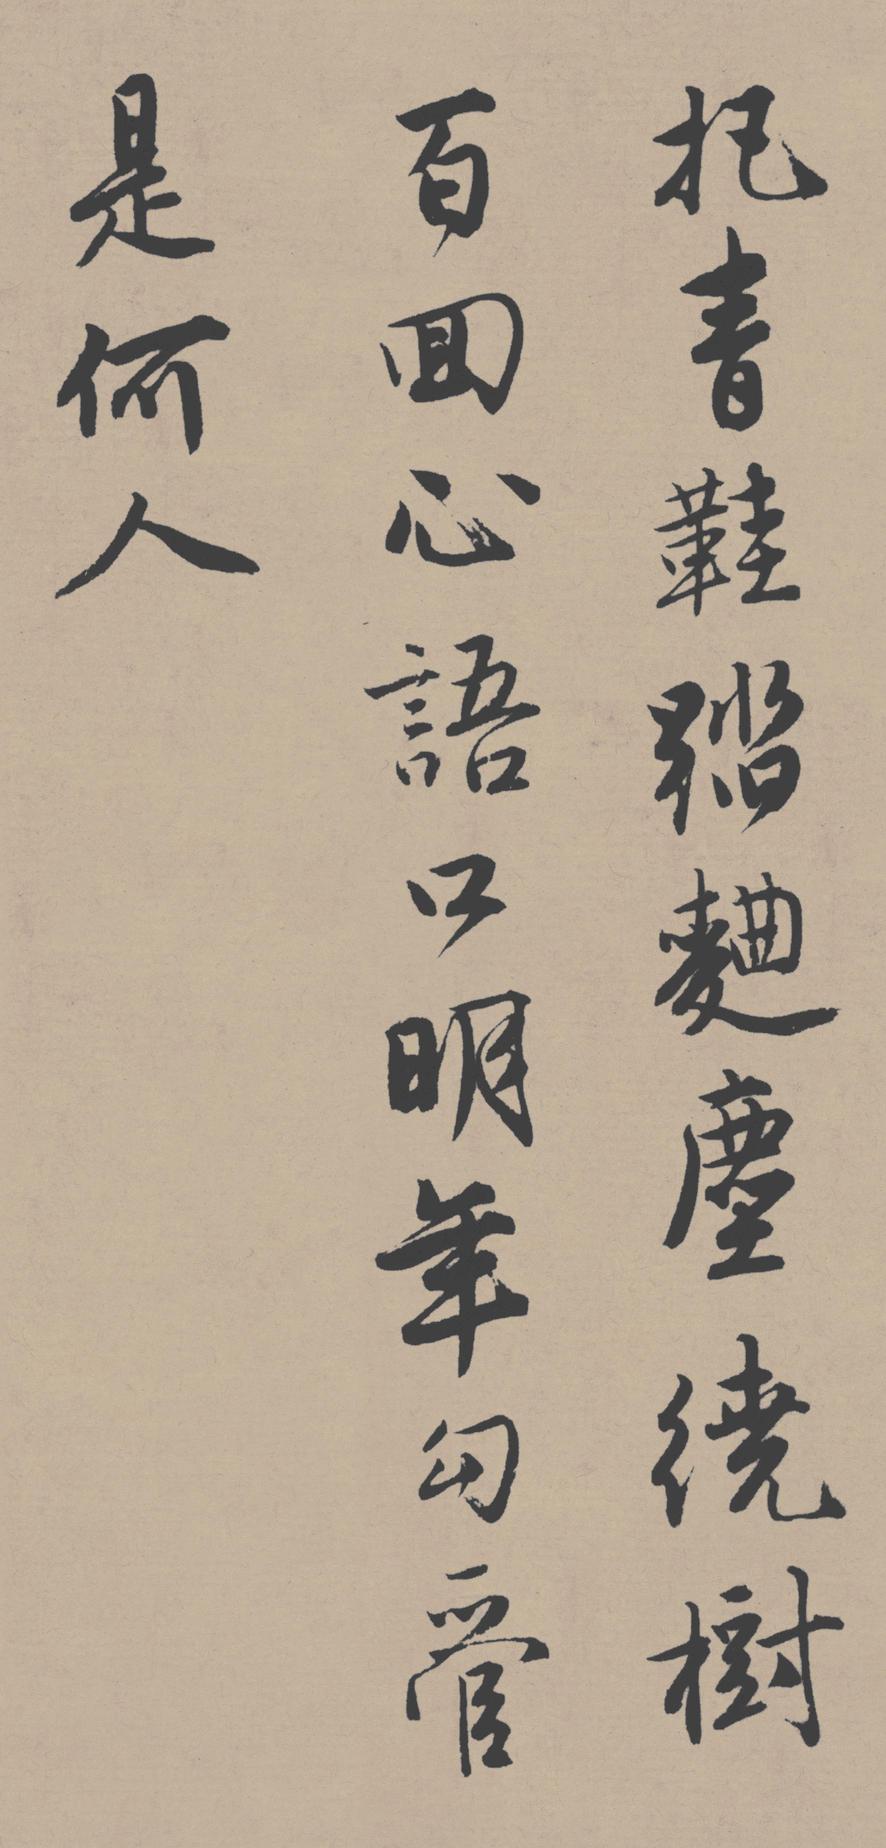 把青鞋踏麯塵繞樹
百回心語口明年勾管
是何人